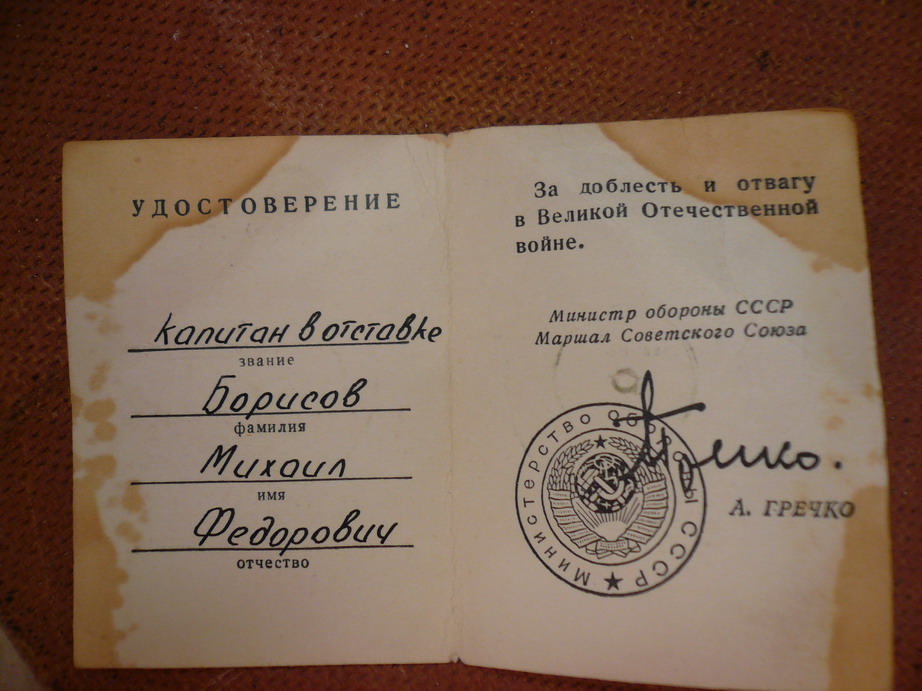 УДОСТОВЕРЕНИЕ
капитан в отставке
звание
Борисов
фамилия
Михаил
имя
Федорович
отчество
За доблесть и отвагу
в Великой Отечественной
войне.
Министр обороны СССР
Маршал Советского Союза
Министерство Обороны СССР
Гречко.
А. ГРЕЧКО